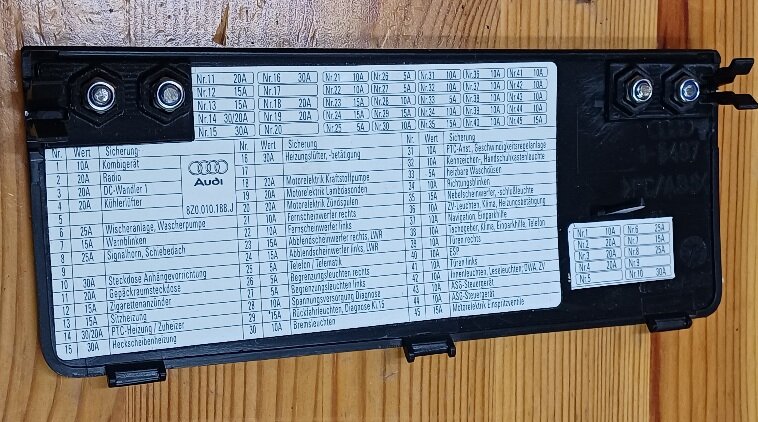 Nr.11 20A Nr.16 30A Nr.21 10A Nr.26 5A Nr.31 10A Nr.36 10A Nr.41 10A
Nr.12 15A Nr.17 Nr.22 10A Nr.27 5A Nr.32 10A Nr.37 10A Nr.42 10A
Nr.13 15A Nr.18 20A Nr.23 15A Nr.28 10A Nr.33 5A Nr.38 10A Nr.43 10A
Nr.14 30/20A Nr.19 20A Nr.24 15A Nr.29 15A Nr.34 10A Nr.39 10A Nr.44 10A
Nr.15 30A Nr.20 Nr.25 5A Nr.30 10A Nr.35 15A Nr.40 10A Nr.45 15A
Nr. Wert Sicherung
1 10A Kombigerät
2 20A Radio
3 20A DC-Wandler 1
4 20A Kühlerlüfter
5
6 25A Wischeranlage, Wascherpumpe
7 15A Warnblinken
8 25A Signalhorn, Schiebedach
9
10 30A Steckdose Anhängevorrichtung
11 20A Gepäckraumsteckdose
12 15A Zigarettenanzünder
13 15A Sitzheizung
14 30/20A PTC-Heizung / Zuheizer
15 30A Heckscheibenheizung
Audi
8Z0.010.188.J
Nr. Wert Sicherung
16 30A Heizungslüfter, -betätigung
17
18 20A Motorelektrik Kraftstoffpumpe
19 20A Motorelektrik Lambdasonden
20 20A Motorelektrik Zündspulen
21 10A Fernscheinwerfer rechts
22 10A Fernscheinwerfer links
23 15A Abblendscheinwerfer rechts, LWR
24 15A Abblendscheinwerfer links, LWR
25 5A Telefon / Telematik
26 5A Begrenzungsleuchten rechts
27 5A Begrenzungsleuchten links
28 10A Spannungsversorgung Diagnose
29 15A Rückfahrleuchten, Diagnose Kl.15
30 10A Bremsleuchten
Nr. Wert Sicherung
31 10A PTC-Anst., Geschwindigkeitsregelanlage
32 10A Kennzeichen-, Handschuhkastenleuchte
33 5A heizbare Waschdüsen
34 10A Richtungsblinken
35 15A Nebelscheinwerfer, -schlußleuchte
36 10A ZV-Leuchten, Klima, Heizungsbetätigung
37 10A Navigation, Einparkhilfe
38 10A Tachogeber, Klima, Einparkhilfe, Telefon
39 10A Türen rechts
40 10A ESP
41 10A Türen links
42 10A Innenleuchten, Leseleuchten, DWA, ZV
43 10A ASG-Steuergerät
44 10A ASG-Steuergerät
45 15A Motorelektrik Einspritzventile
Nr.1 10A Nr.6 25A
Nr.2 20A Nr.7 15A
Nr.3 20A Nr.8 25A
Nr.4 20A Nr.9
Nr.5 Nr.10 30A